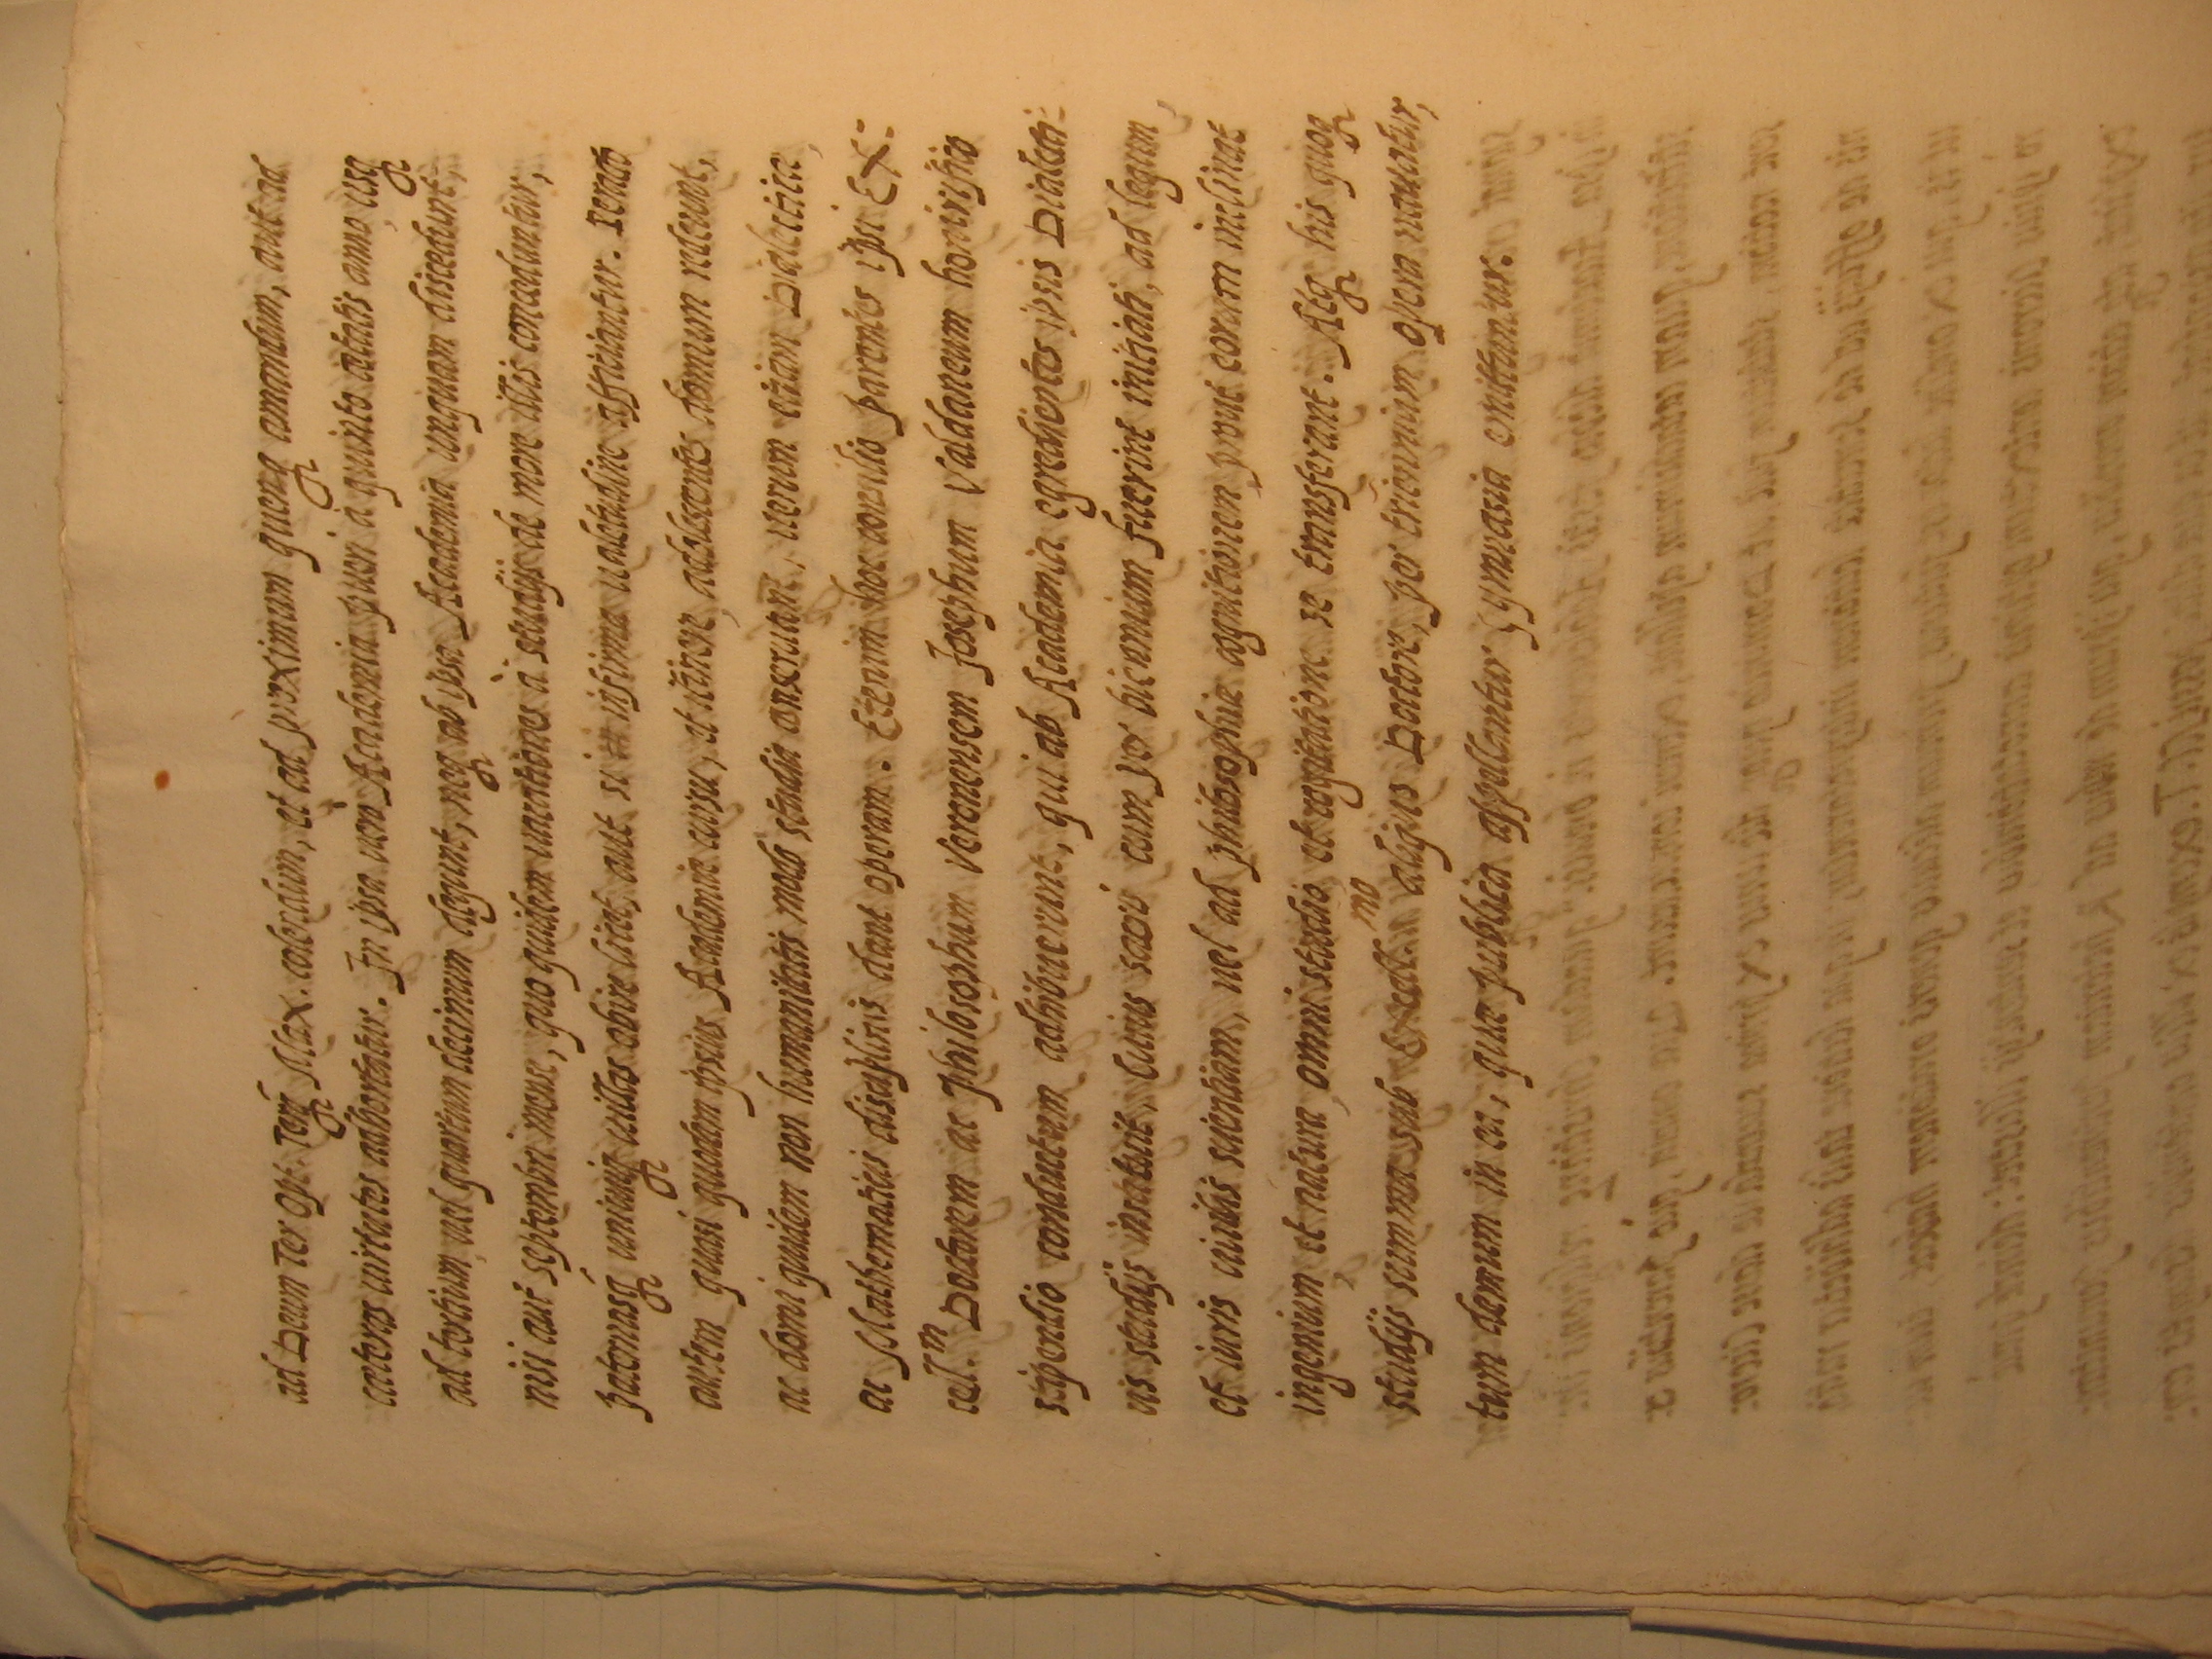 ad Deum Ter Opt. Terq Max. colendum, et ad proximum quenq amandum, aut ad
caeteras uirtutes adhortatur. In ipsa uero Academia pueri à quinto aetatis anno usq
ad tertium, uel quartum decimum degunt, neq ab ipsa Academia unquam discedunt,
nisi aut septembri mense, quo quidem uacationes à studijs de more illis conceduntur,
paternasq unicuiq uillas obire licet, aut si infirma ualetudine afficiantur. Peracto
autem quasi quodam ipsius Academiae cursu, et itinere, adulescentes domum redeunt,
ac domi quidem non humanitatis modo studia conseruant, uerum etiam Dialecticae,
ac Mathematicis disciplinis dant operam. Etenim hoc consilio parentes ipsi Ex-
cell.m Doctorem ac Philosophum Veronensem Josephum Valdaneum honorifico
stipendio conductum adhibuerunt, qui ab Academia egredientes ipsis Dialecti-
cis studijs instituit. Cuius sacris cum per biennium fuerint initiati, ad legum,
et iuris ciuilis scientiam, uel ad philosophiae agnitionem prout eorum inclinat
ingenium et natura, omni studio et cogitatione se transferant. Atq his quoq
studijs summa sub Excell.mo aliquo Doctore, per triennium opera nauatur,
tum demum in ea, quae publica appellantur Gymnasia emittuntur.